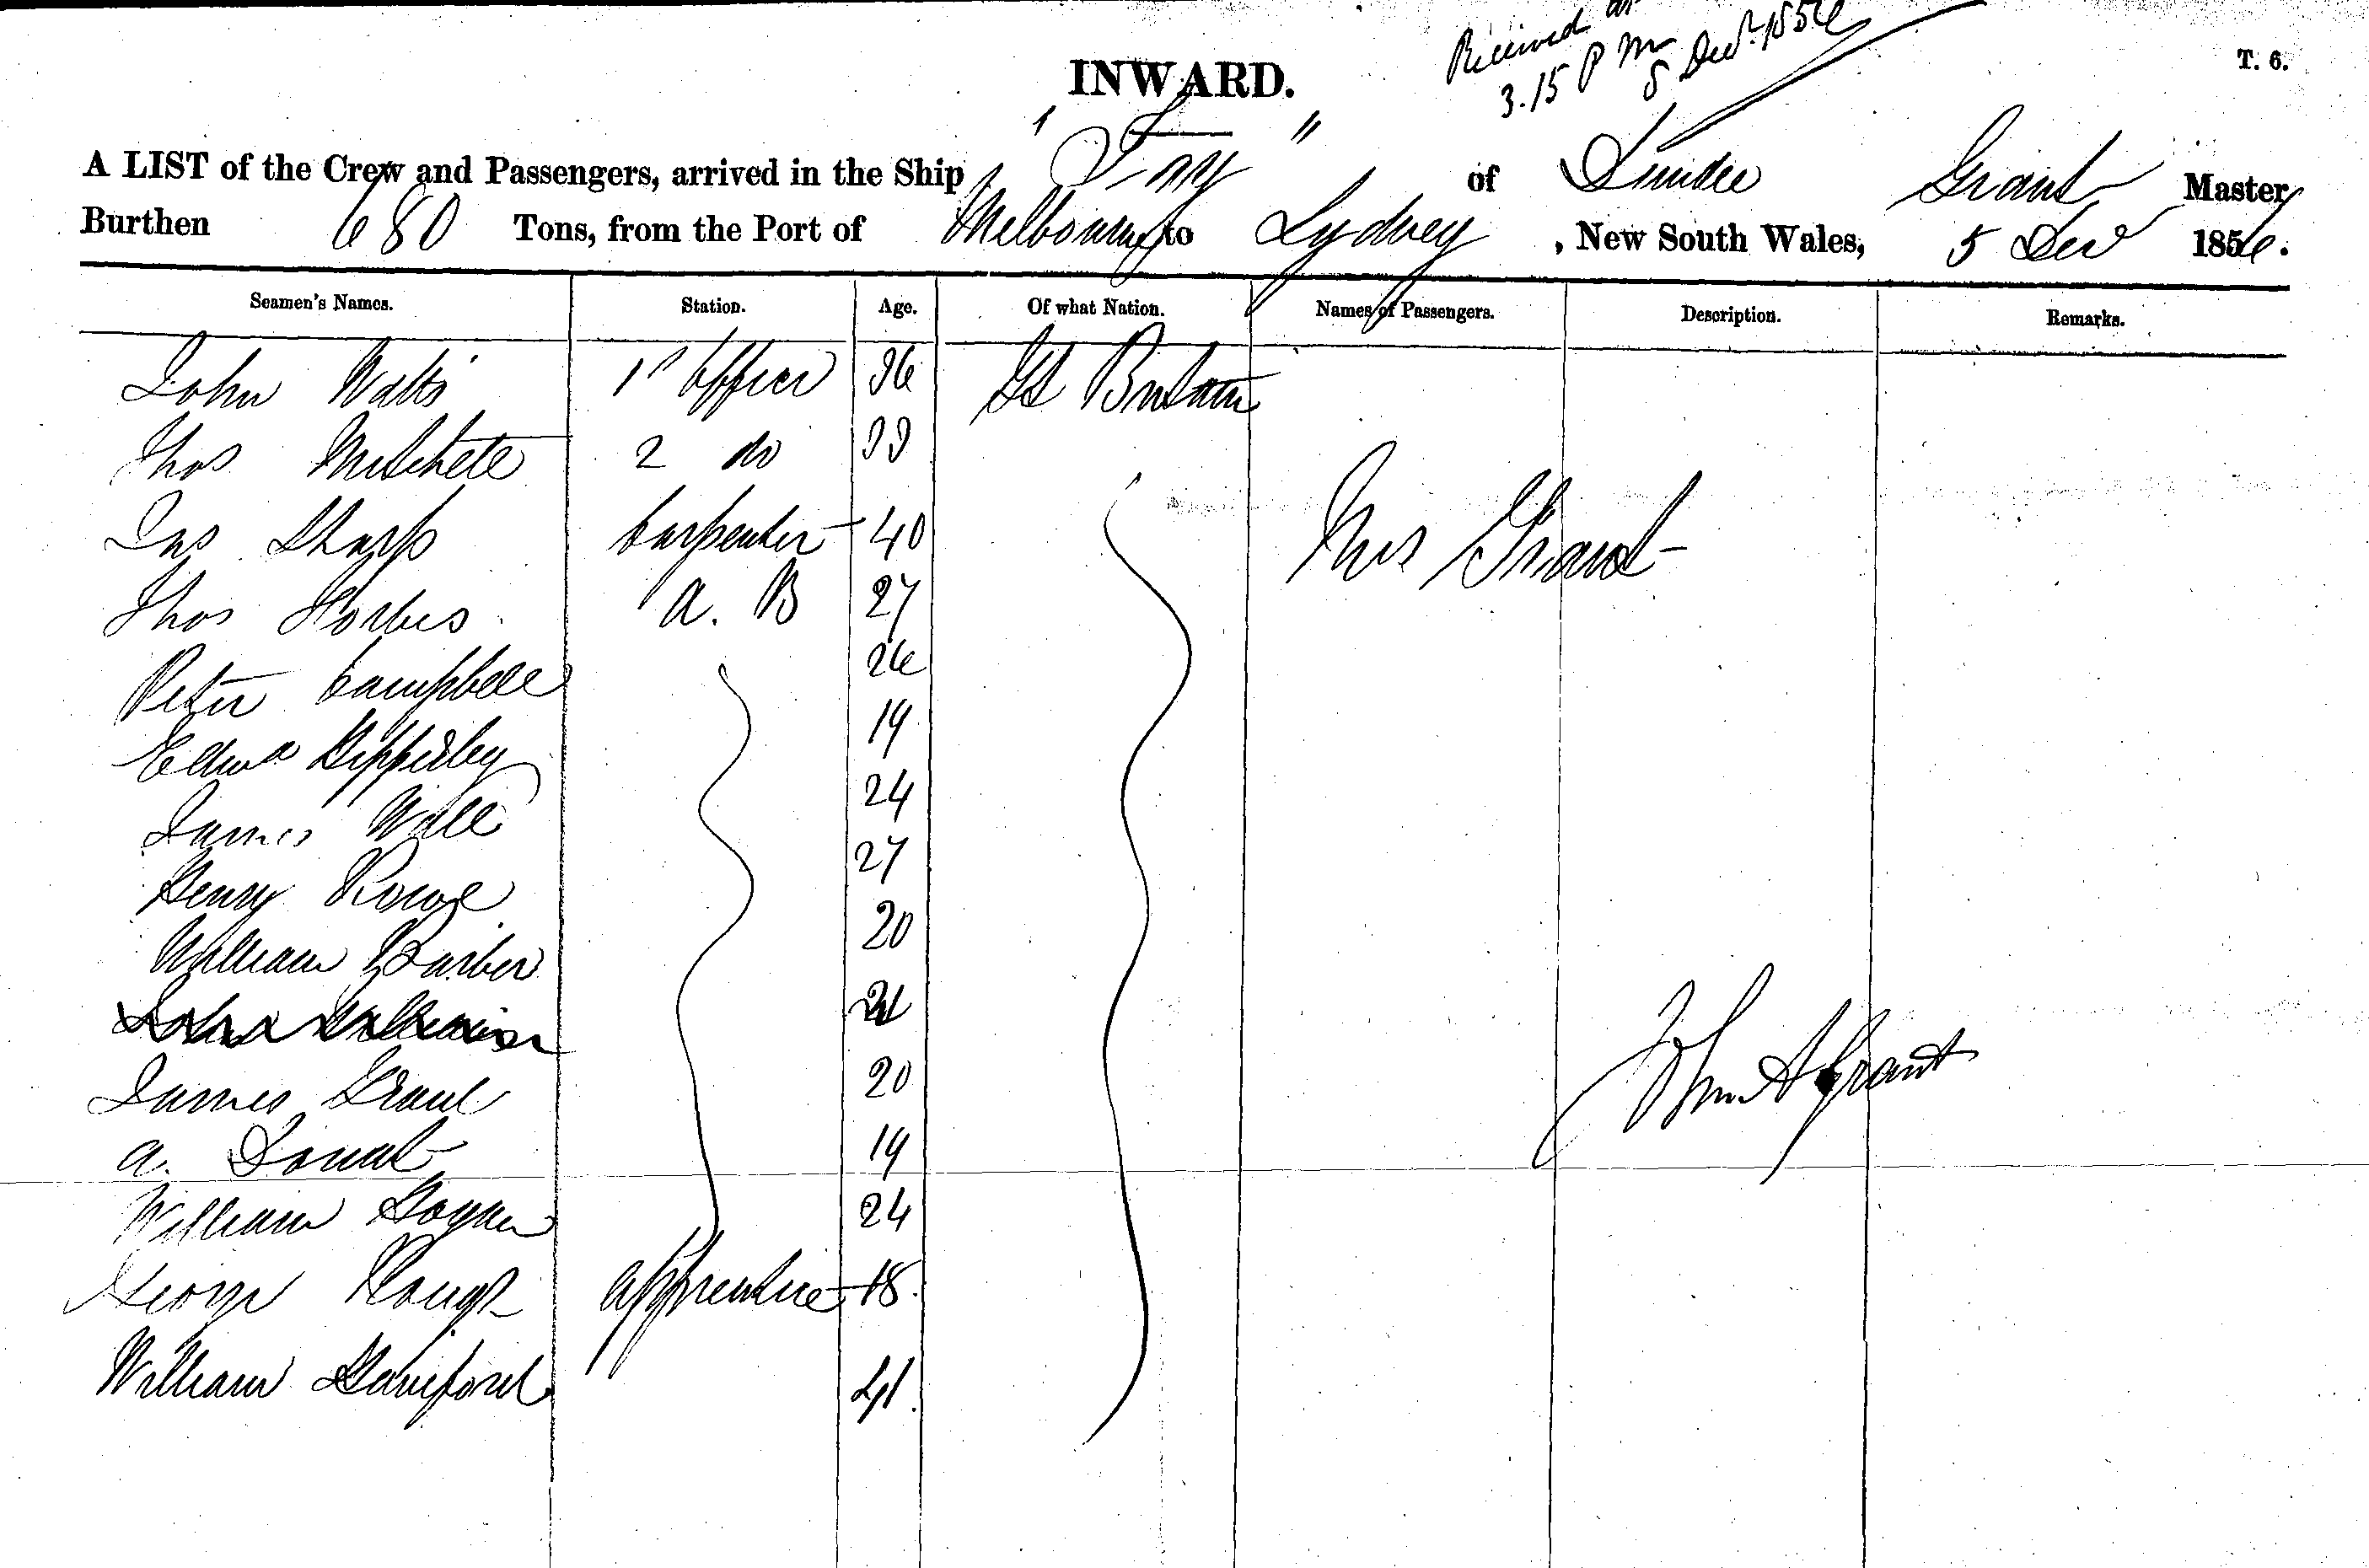 Received at
3.15 P M
5 Decr. 1856
T. 6.
INWARD.
A LIST of the Crew and Passengers, arrived in the Ship "Tay" of Dundee Grant Master
Burthen 680 Tons, from the Port of Melbourne to Sydney, New South Wales, 5 Dec 1856.
Seamen's Names. Station. Age. Of what Nation. Names of Passengers. Description. Remarks.
John Watts 1st Officer 36 Gt Britain
Thos Mitchell 2 do 33
Jas Sharp Carpenter 40 Mrs Grant
Thos Forbes A. B 27
Peter Campbell 26
Edwd 19
James Will 24
Henry Rowe 27
William Barber 20
John 21
James Grant 20
A. 19
William 24
George Rough Apprentice 18.
William 41.
John A Grant